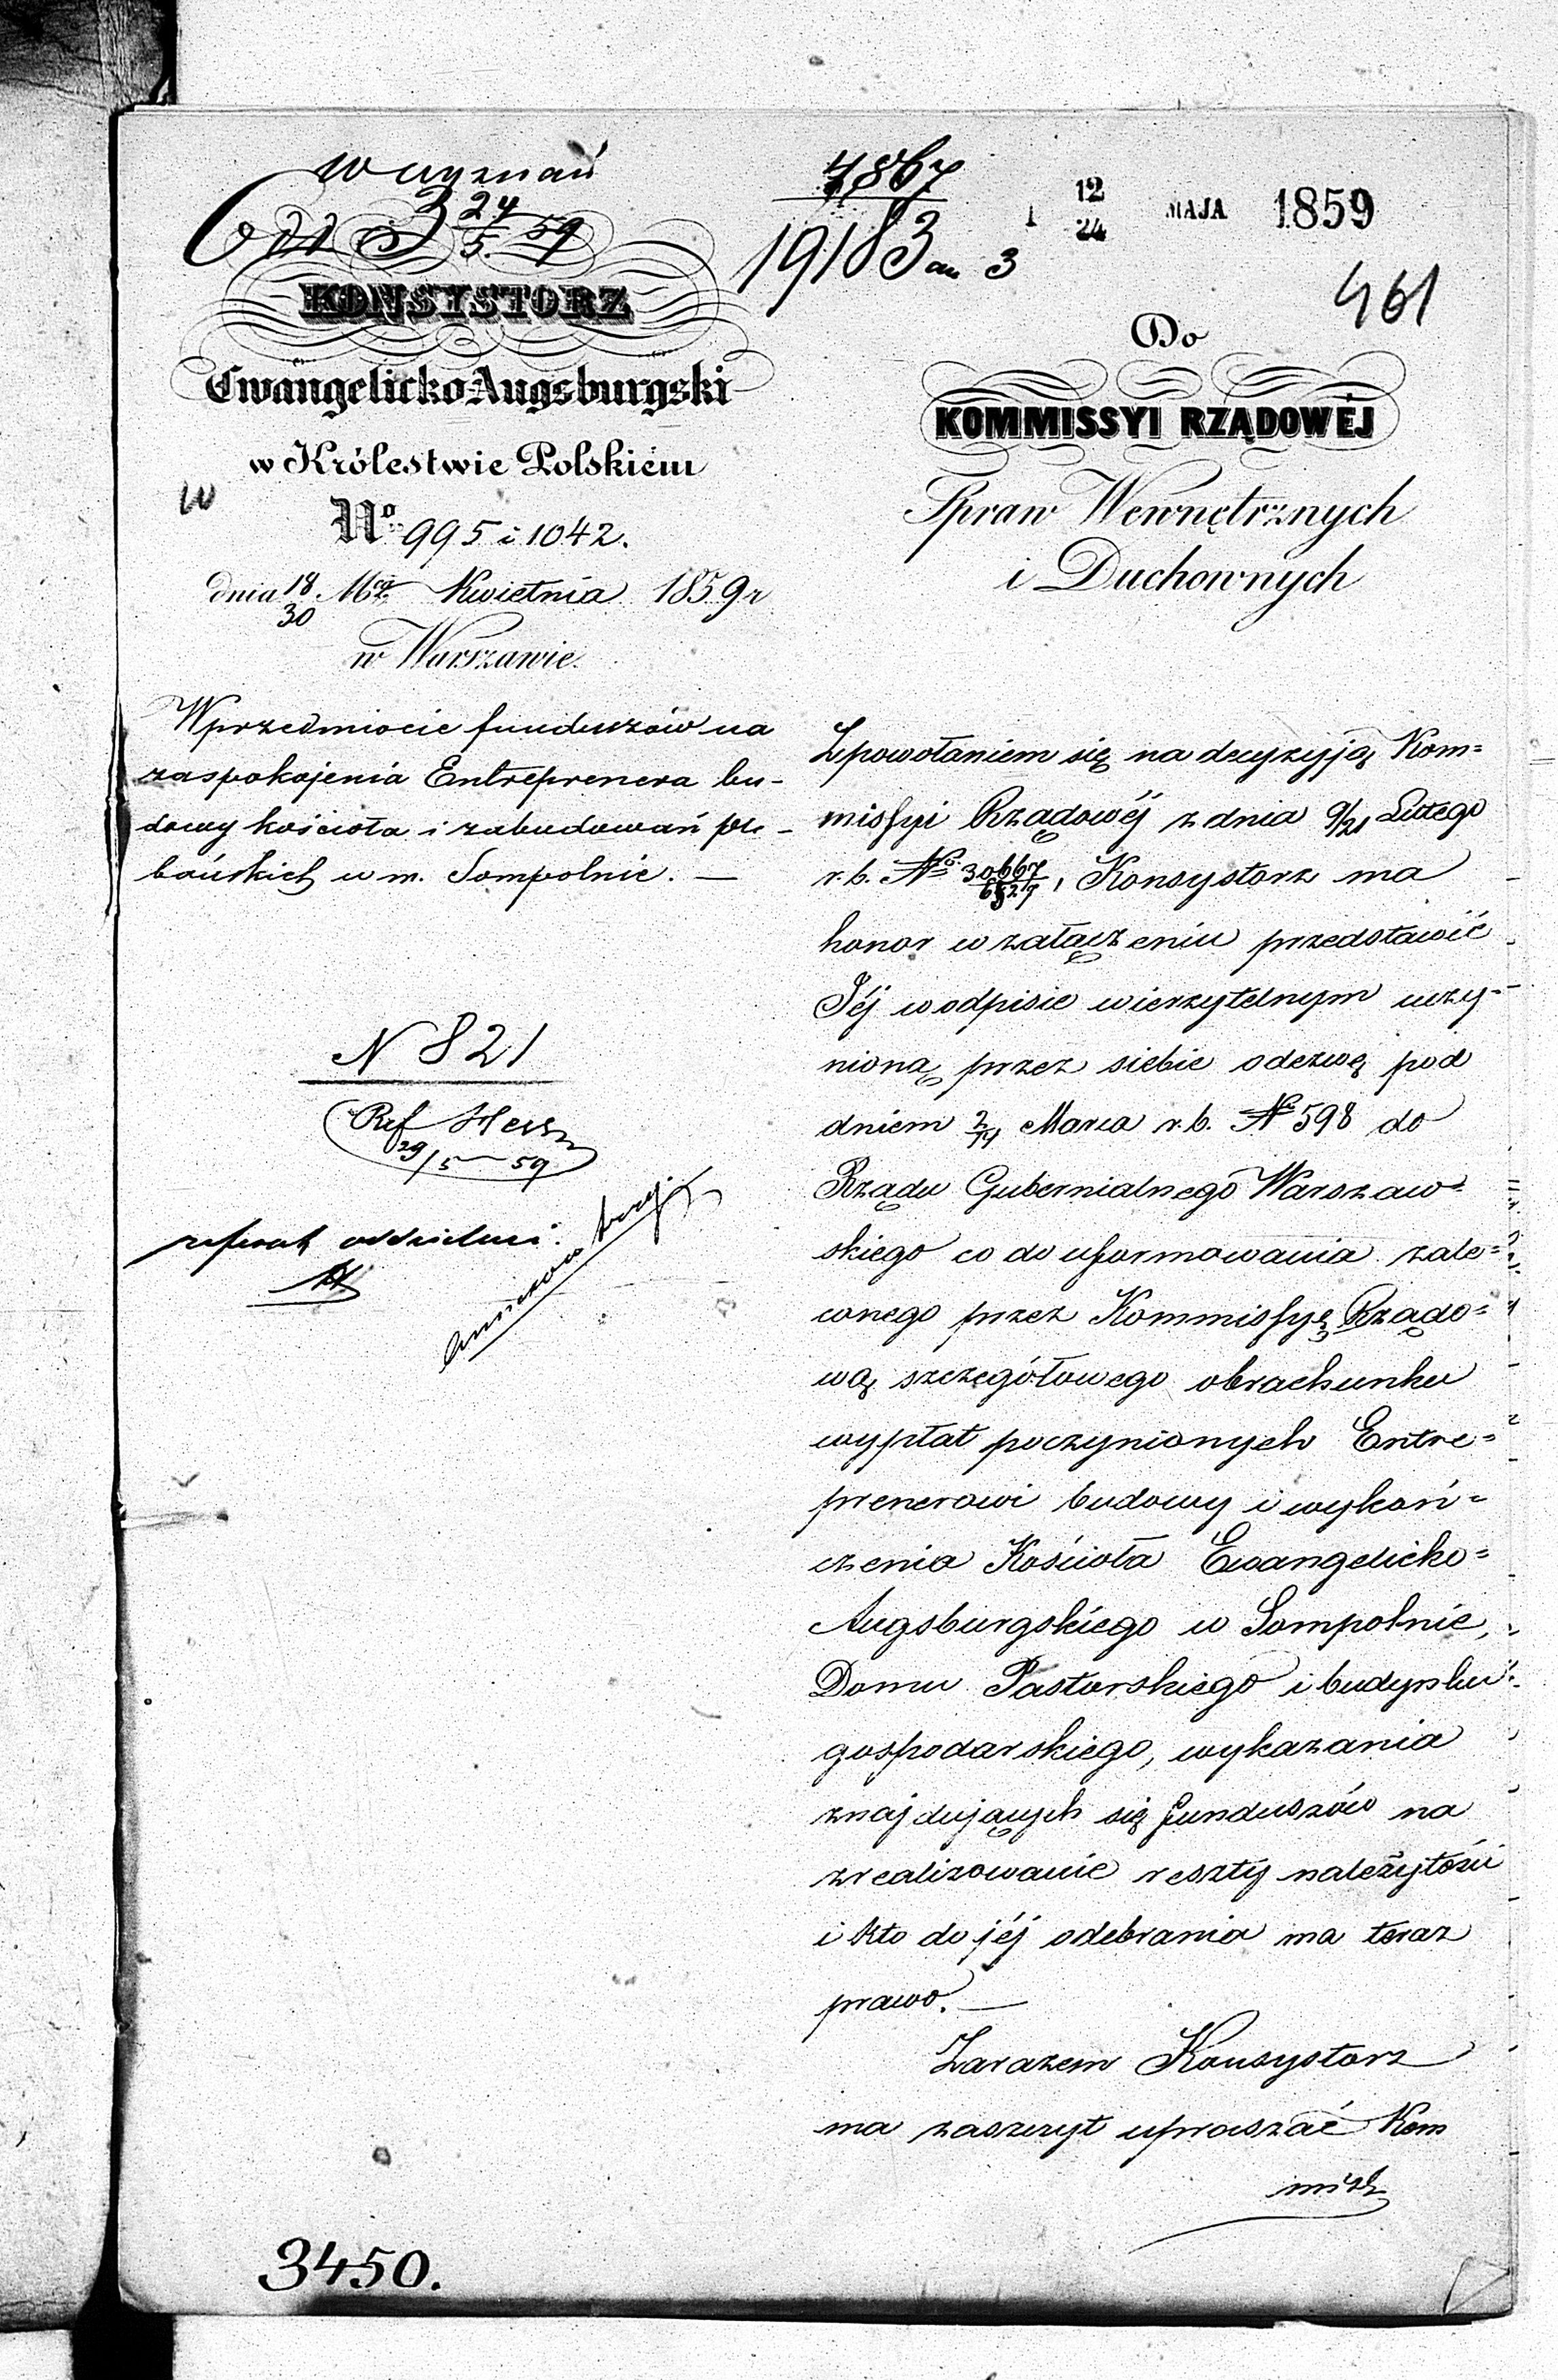 w wyznań
24/5 59
KONSYSTORZ
Ewangelicko-Augsburgski
w Królestwie Polskiém
W
No 995 i 1042.
dnia 18/30 Mca Kwietnia 1859 r
w Warszawie.
W przedmiocie funduszów na
zaspokojenia Entreprenera bu-
dowy kościoła i zabudowań ple-
bańskich w m. Sompolnie. —
N 821
Ref Hersz
29/5 — 59
referat oddzielni.
3450.
4867
19183 au 3
12/24 MAJA 1859
461
Do
KOMMISSYI RZĄDOWÉJ
Spraw Wewnętrznych
i Duchownych
Z powołaniem się na decyzyją Kom=
missyi Rządowéj z dnia 9/21 Lutego
r. b. No 30667/6527, Konsystorz ma
honor w załączeniu przedstawić
Jéj w odpisie wierzytelnym uczy-
nioną przez siebie odezwę pod
dniem 2/14 Marca r. b. No 598 do
Rządu Gubernialnego Warszaw-
skiego co do uformowania zale=
conego przez Kommissyę Rządo=
wą szczegółowego obrachunku
wypłat poczynionych Entre=
prenerowi budowy i wykoń=
czenia Kościoła Ewangelicko=
Augsburgskiego w Sompolnie,
Domu Pastorskiego i budynku
gospodarskiego, wykazania
znajdujących się funduszów na
zrealizowanie reszty należytości
i kto do jéj odebrania ma teraz
prawo. —
Zarazem Konsystorz
ma zaszczyt upraszać Kom
miss